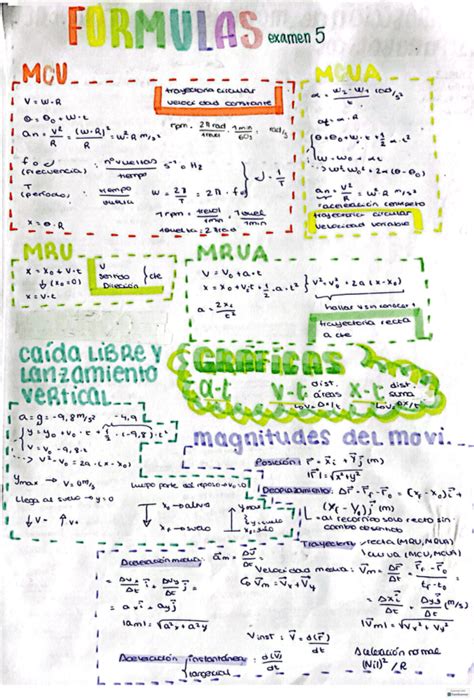 FORMULAS examen 5
MCU
trayectoria circular
velocidad constante
V = ω·R
θ = θ₀ + ω·t
an = V²/R = (ω·R)²/R = ω²·R m/s²
rpm · 2π rad/1rev · 1min/60s = rad/s
f o ν (frecuencia) : nº vueltas/tiempo s⁻¹ o Hz
T (período) : tiempo/vuelta
ω = 2π/T = 2π·f
f = 1/T
1rpm = 1revol/1min = 1vuel/1min
1vuelta = 2π rad
x = θ·R
MCUA
α = ω₂-ω₁/t rad/s²
at = α·R
θ = θ₀ + ω₀t + 1/2 α·t²
ω = ω₀ + αt
ω² = ω₀² + 2α(θ-θ₀)
an = V²/R = ω²·R m/s²
trayectoria circular
velocidad variable
MRU
x = x₀ + v·t
(x₀=0)
x = v·t
V
Sentido
Dirección
} cte
MRVA
V = V₀ + a·t
x = x₀ + v₀·t + 1/2·a·t²
V² = V₀² + 2a(x-x₀)
a = 2x/t²
hallar v sin conocer t
trayectoria recta
a cte
caída LIBRE y
Lanzamiento
vertical
a = g = -9,8m/s²
-4,9
y = y₀ + v₀·t + 1/2·(-9,8)·t²
V = V₀ - 9,8·t
V² = V₀² + 2a·(x-x₀)
Ymax → V = 0m/s
Llega al suelo → y=0
↓V- ↑V+
x₀ → altura
x → suelo
GRÁFICAS
a-t v-t x-t
dist. áreas
dist. suma
magnitudes del movi.
Posición: r = xi + yj (m)
|r| = √x²+y²
Desplazamiento: Δr = rf - r₀ = (xf-x₀)i +
(yf-y₀)j (m)
= al recorrido solo recto sin
cambio de sentido
Trayectoria
recta (MRU, MRUA)
curva (MCU, MCUA)
Aceleración media: am = Δv/Δt
= Δvx/Δt i + Δvy/Δt j =
= ax i + ay j
|am| = √ax²+ay²
Velocidad media: Vm = Δr/Δt = rf-r₀/tf-t₀
Vm = Vx + Vy
= Δx i/Δt + Δy j/Δt (m/s)
|Vm| = √Vx²+Vy²
Vinst : d(r)/dt
Aceleración instantánea : d(v)/dt
Aceleración normal
/R